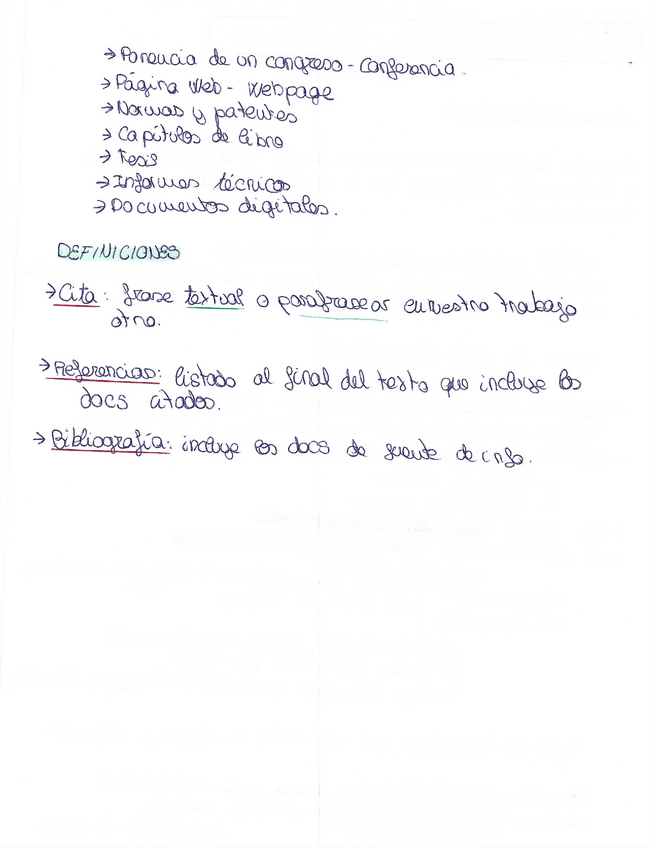 → Ponencia de un congreso - Conferencia.
→ Página Web - Webpage
→ Normas y patentes
→ Capítulos de libro
→ Tesis
→ Informes técnicos
→ Documentos digitales.
DEFINICIONES
→ Cita: frase textual o parafrasear en nuestro trabajo
otro.
→ Referencias: listado al final del texto que incluye los
docs citados.
→ Bibliografía: incluye los docs de fuente de info.